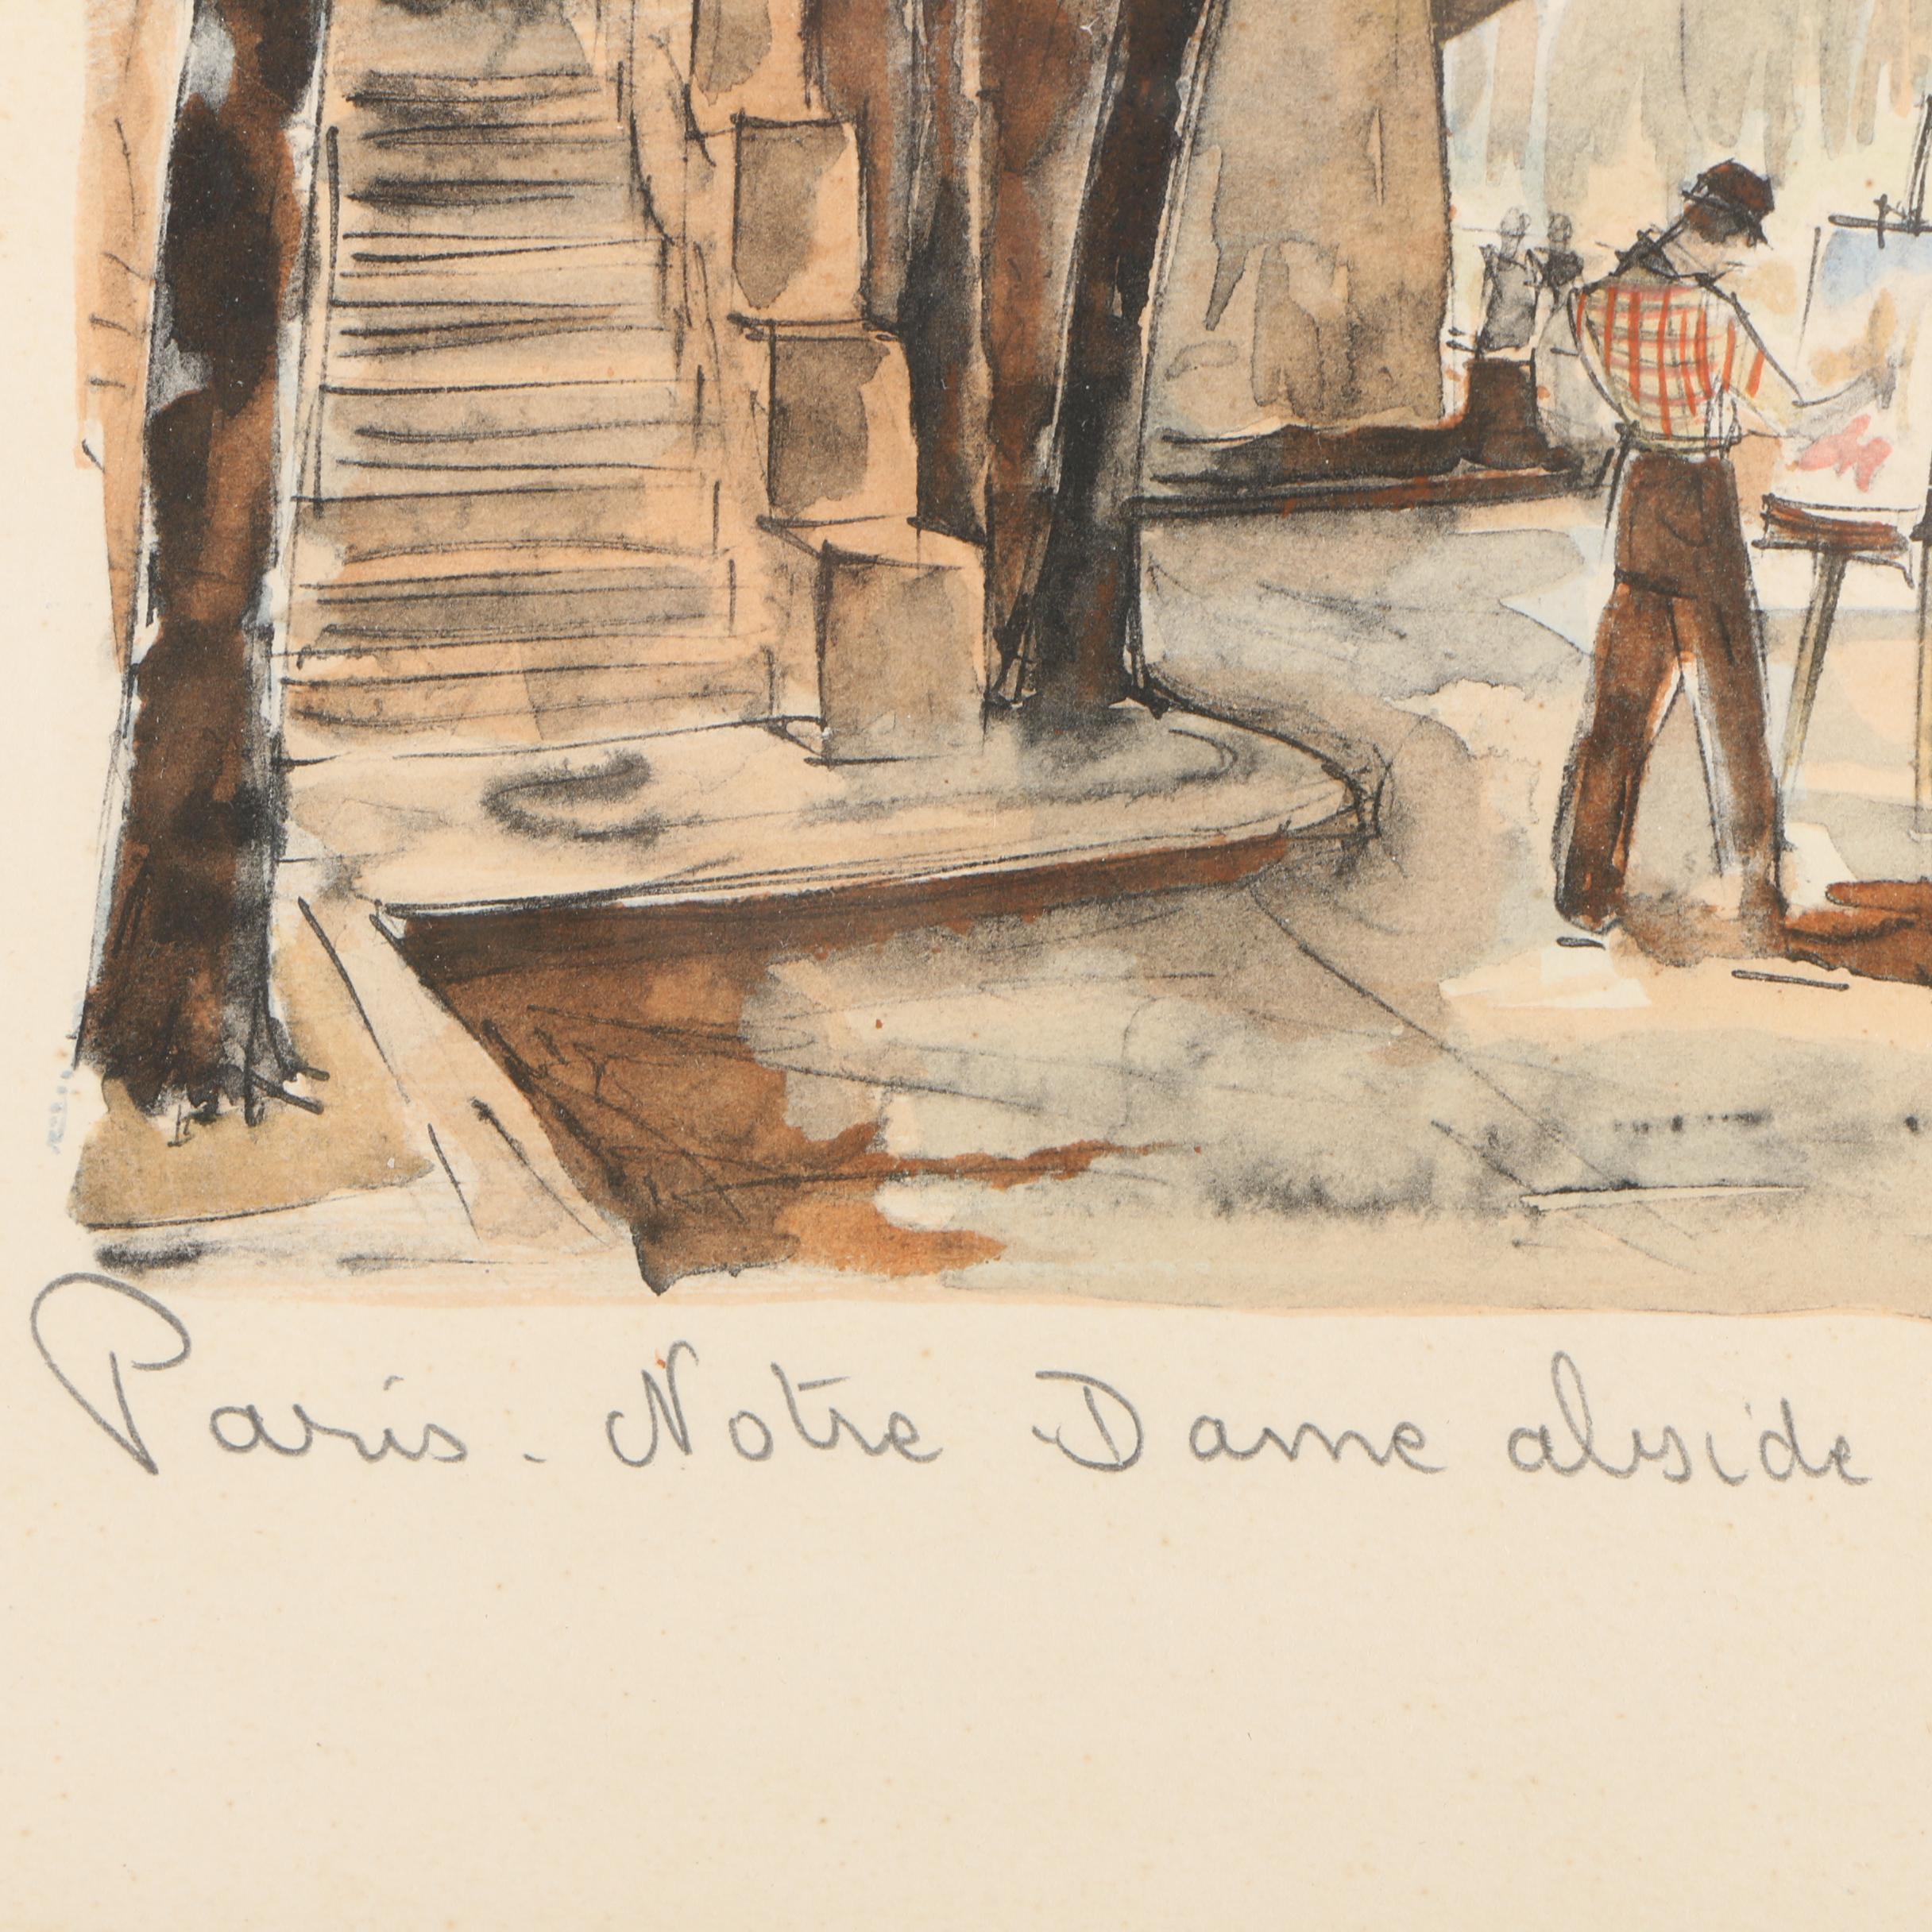 Paris. Notre Dame abside